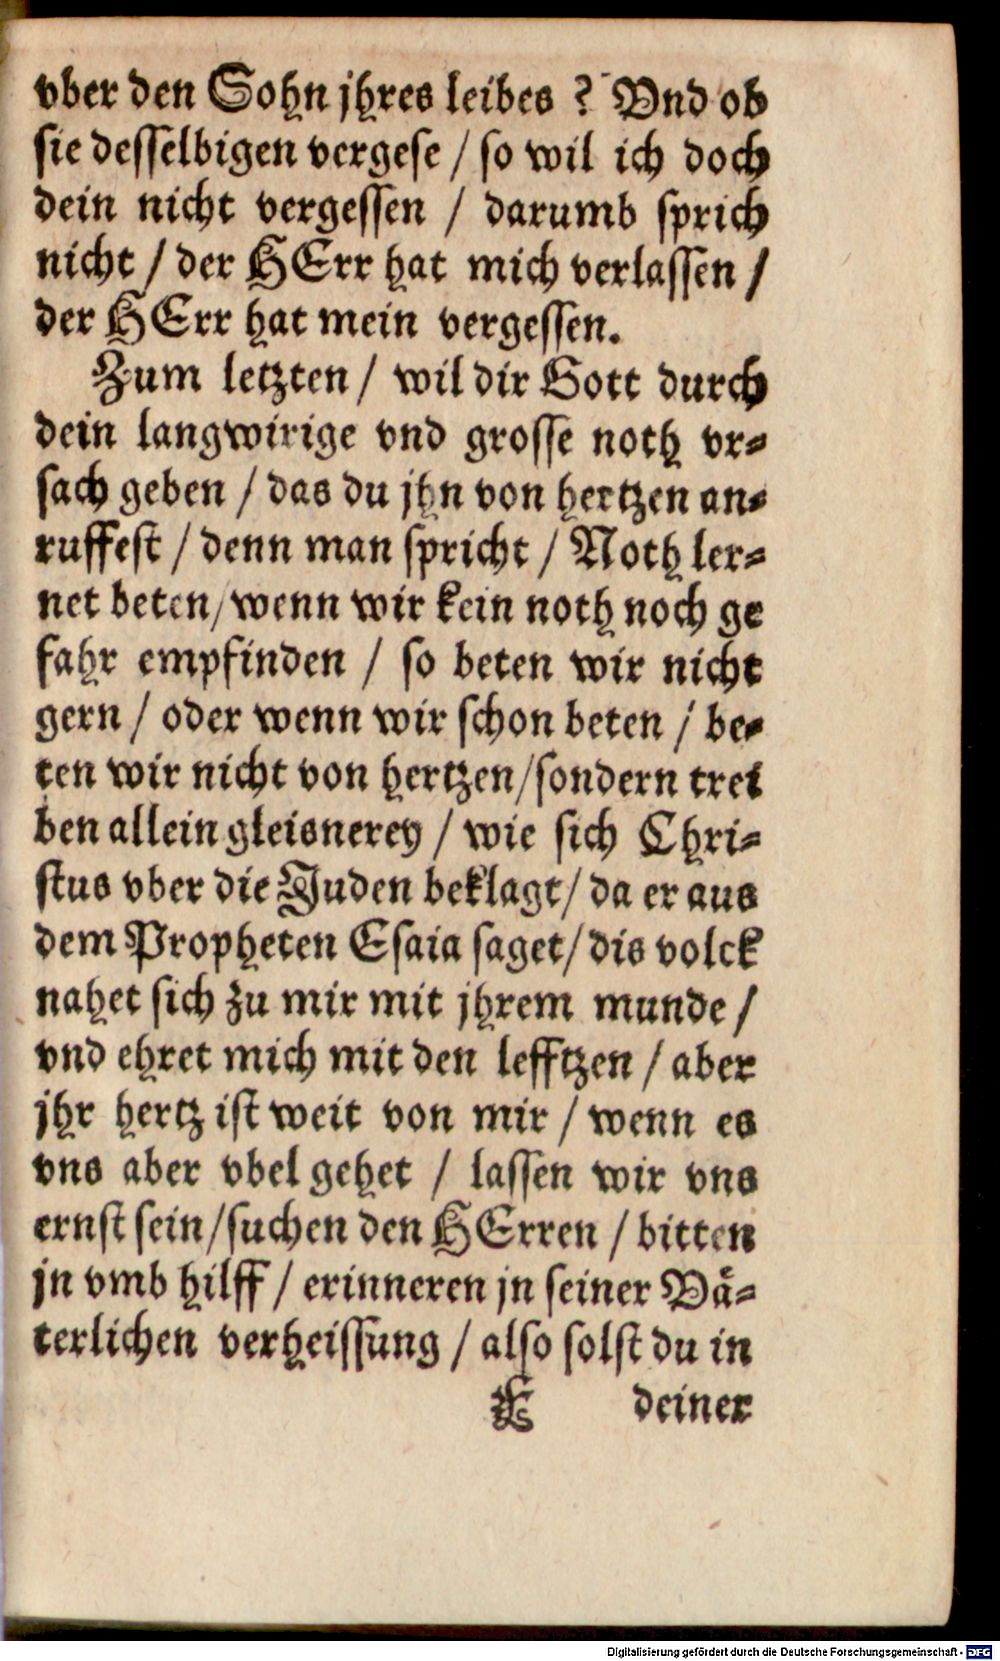 vber den Sohn jhres leibes ? Vnd ob
sie desselbigen vergese / so wil ich doch
dein nicht vergessen / darumb sprich
nicht / der HErr hat mich verlassen /
der HErr hat mein vergessen.
Zum letzten / wil dir Gott durch
dein langwirige vnd grosse noth vr-
sach geben / das du jhn von hertzen an-
ruffest / denn man spricht / Noth ler-
net beten / wenn wir kein noth noch ge
fahr empfinden / so beten wir nicht
gern / oder wenn wir schon beten / be-
ten wir nicht von hertzen / sondern trei
ben allein gleisnerey / wie sich Chri-
stus vber die Juden beklagt / da er aus
dem Propheten Esaia saget / dis volck
nahet sich zu mir mit jhrem munde /
vnd ehret mich mit den lefftzen / aber
jhr hertz ist weit von mir / wenn es
vns aber vbel gehet / lassen wir vns
ernst sein / suchen den HErren / bitten
jn vmb hilff / erinneren jn seiner Vä-
terlichen verheissung / also solst du in
E deiner
Digitalisierung gefördert durch die Deutsche Forschungsgemeinschaft - DFG